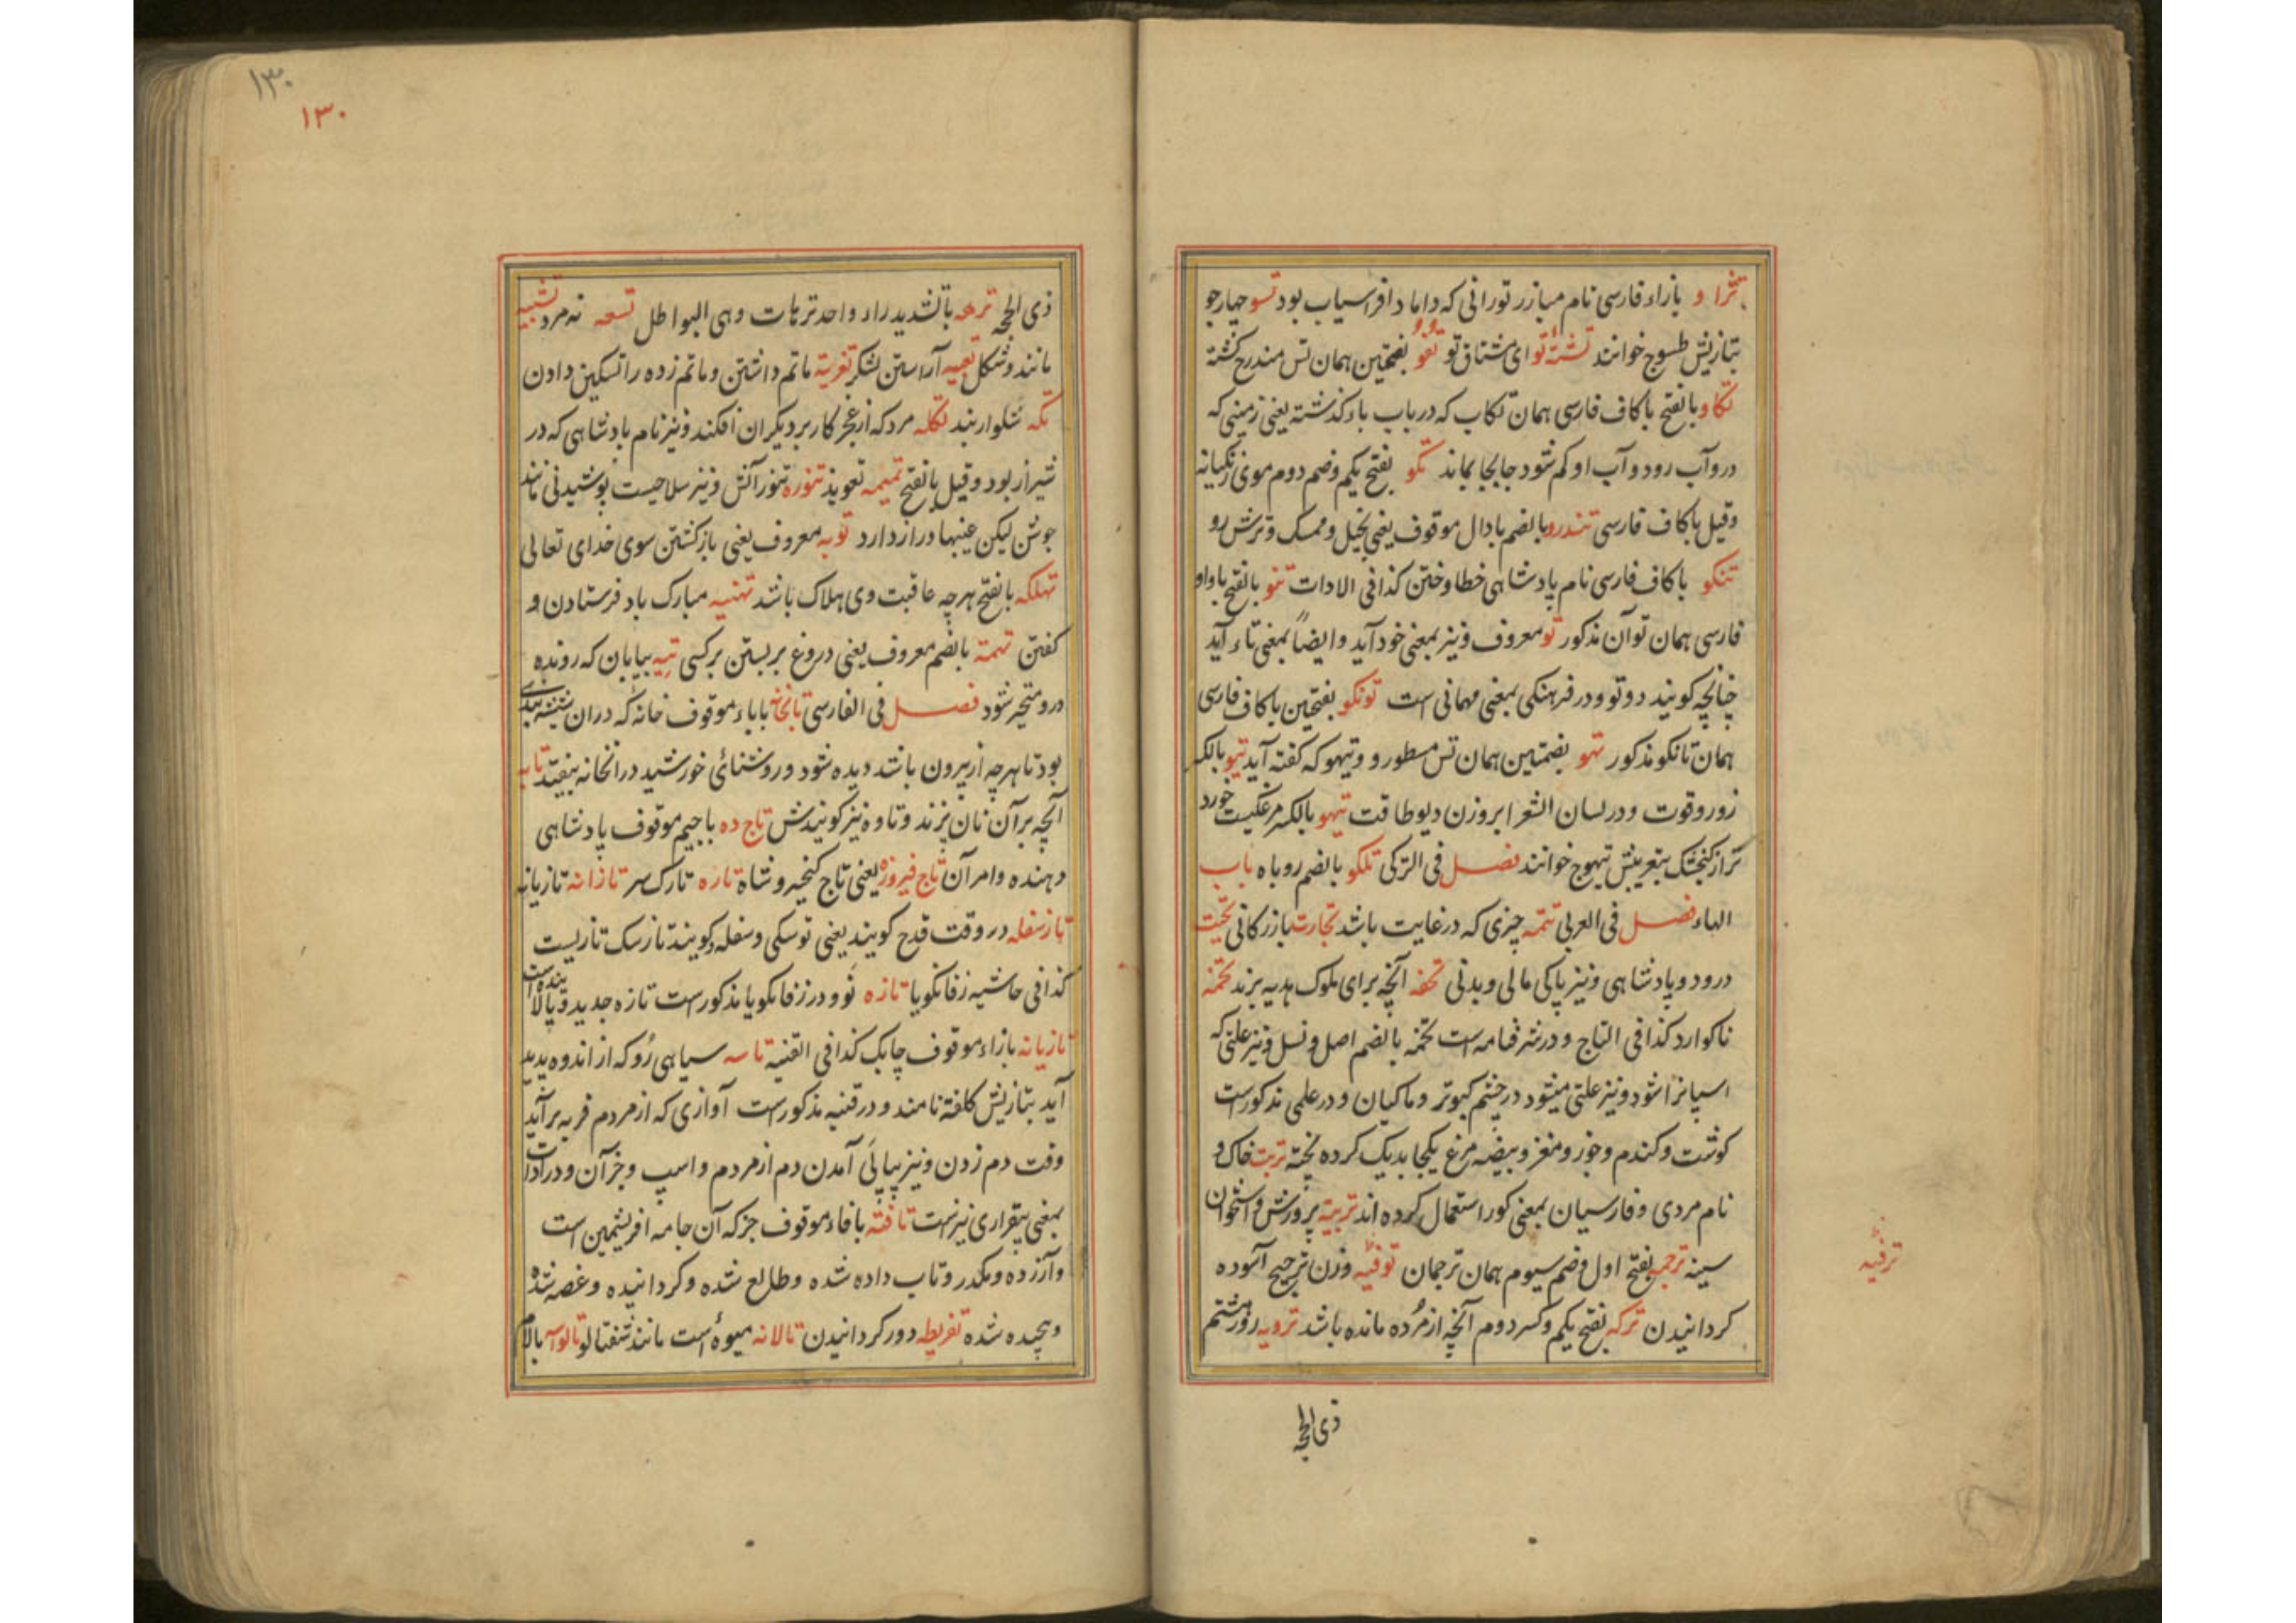 تژاو بازاء فارسی نام مبارز تورانی که داماد افراسیاب بود تسو چهار جو
بتازیش طسوج خوانند تشنهٔ تو ای مشتاق تو تفو بضمتین همان تس مندرج کشته
تکاو بالفتح باکاف فارسی همان تکاب که در باب باء کذشته یعنی زمینی که
درو آب رود و آب او کم شود جابجا بماند تکو بفتح یکم و ضم دوم موی زنکیانه
وقیل باکاف فارسی تندرو بالضم بادال موقوف یعنی بخیل و ممسک و ترش رو
تنکو باکاف فارسی نام پادشاهی خطا و ختن کذا فی الادات تنو بالفتح باواو
فارسی همان توان مذکور تو معروف و نیز بمعنی خود آید و ایضاً بمعنی تاء آید
چنانچه کویند دوتو و در فرهنکی بمعنی مهمانی است تونکو بفتحین باکاف فارسی
همان تانکو مذکور تهو بضمتین همان تس مسطور و تیهو که کفته آید تیو بالکسر
زور و قوت و در لسان الشعرا بروزن دیو طاقت تیهو بالکسر مرغکیست خورد
تر از کنجشک بتعریبش تیهوج خوانند فصل فی الترکی تلکو بالضم روباه باب
الهاء فصل فی العربی تتمه چیزی که در غایت باشد تجارت بازرکانی تحیت
درود و پادشاهی و نیز پاکی مالی و بدنی تحفه آنچه برای ملوک هدیه برند تخمه
ناکوارد کذا فی التاج و در شرفنامه است تخمه بالضم اصل و نسل و نیز علتی که
اسپانرا شود و نیز علتی میشود در چشم کبوتر و ماکیان و در علمی مذکورست
کوشت و کندم و جوز و مغز و بیضه مرغ یکجا بدیک کرده پخته تربت خاک و
نام مردی و فارسیان بمعنی کور استعمال کرده اند تربیة پرورش و استخوان
سینه ترجمه بفتح اول و ضم سیوم همان ترجمان توفیه وزن ترجیح آسوده
ترفیه
کردانیدن ترکه بفتح یکم و کسر دوم آنچه از مرده مانده باشد ترویه روز هشتم
ذی الحجه
۱۳۰
۱۳۰
ذی الحجه ترهه بالتشدید راء واحد ترهات وهی البواطل تسعه نه مرد تشبیه
مانند و شکل تعبیه آراستن لشکر تعزیة ماتم داشتن و ماتم زده را تسکین دادن
تکه شلوار بند تکله مرد که از عجز کار بر دیکران افکند و نیز نام پادشاهی که در
شیراز بود و قیل بالفتح تمیمه تعویذ تنوره تنور آتش و نیز سلاحیست پوشیدنی مانند
جوشن لیکن عیبها دراز دارد توبه معروف یعنی بازکشتن سوی خدای تعالی
تهلکه بالفتح هرچه عاقبت وی هلاک باشد تهنیه مبارک باد فرستادن و
کفتن تهمة بالضم معروف یعنی دروغ بربستن بر کسی تیه بیابان که رونده
درو متحیر شود فصل فی الفارسی تابخانه باباء موقوف خانه که دران شیشه بندی
بود تا هرچه از بیرون باشد دیده شود و روشنائی خورشید در انخانه بیفتد تابه
آنچه برآن نان پزند و تاوه نیز کویندش تاج ده باجیم موقوف پادشاهی
دهنده و امر آن تاج فیروزه یعنی تاج کیخسرو شاه تاره تارک سر تازانه تازیانه
تازسفله در وقت قدح کویند یعنی توسکی و سفله و کویند تازسک تازیست
کذا فی حاشیه زفانکویا تازه نو و در زفانکویا مذکورست تازه جدید و پالا بنده است
تازیانه بازاء موقوف چابک کذا فی القنیه تاسه سیاهی رو که از اندوه پدید
آید بتازیش کلفة نامند و در قنیه مذکورست آوازی که از مردم فربه برآید
وقت دم زدن و نیز پیاپی آمدن دم از مردم و اسپ و جز آن و در ادات
بمعنی بیقراری نیزست تافته بافاء موقوف جز که آن جامه افریشمین است
و آزرده و مکدر و تاب داده شده و طالع شده و کردانیده و غصه شده
و پیچیده شده تفریطه دور کردانیدن تالانه میوه است مانند شفتالو تالوسه بالام